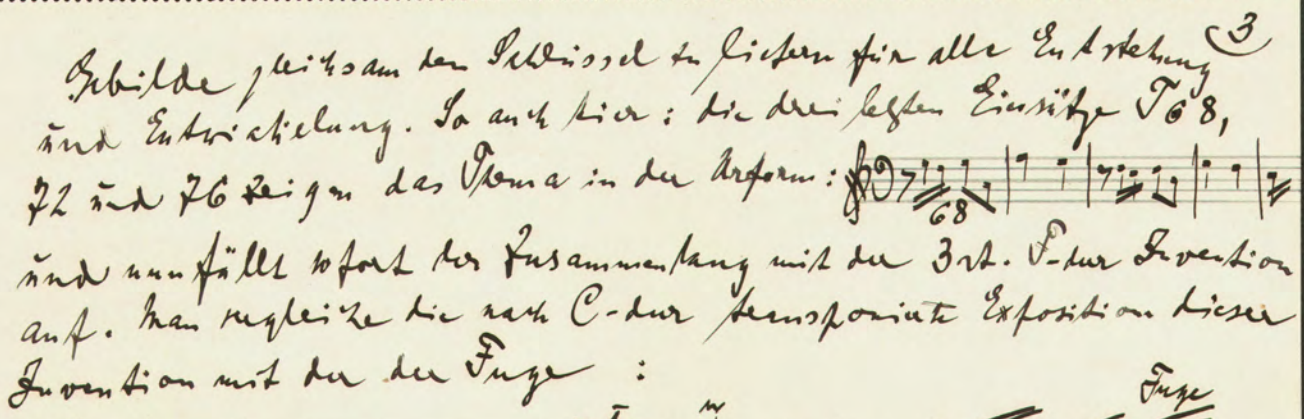 3
Gebilde gleichsam den Schlüssel zu liefern für alle Entstehung
und Entwickelung. So auch hier: die drei letzten Einsätze T 68,
72 und 76 zeigen das Thema in der Urform:
68
und nun fällt sofort der Zusammenhang mit der 3st. F-dur Invention
auf. Man vergleiche die nach C-dur transponierte Exposition dieser
Invention mit der der Fuge :
Fuge